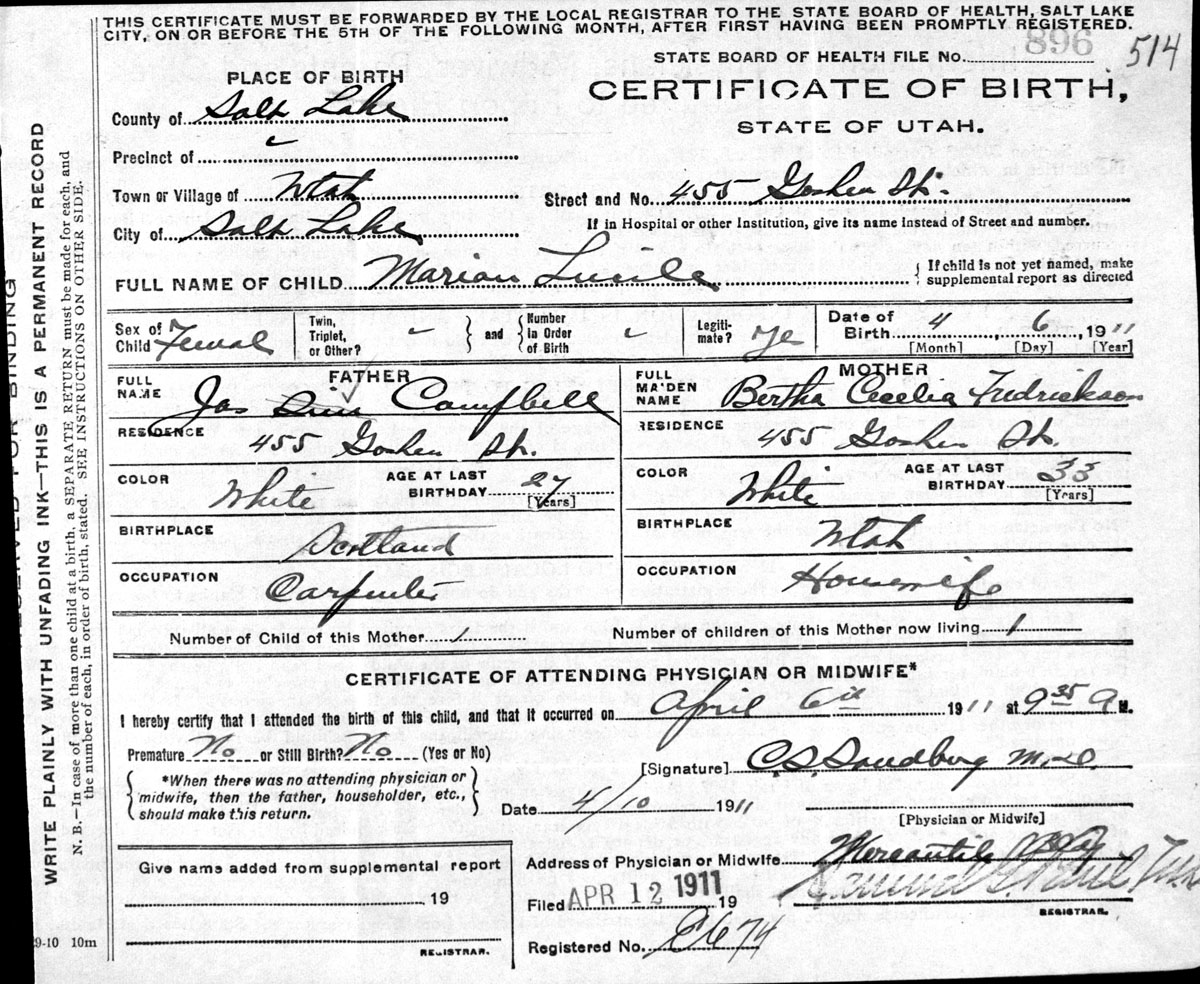 THIS CERTIFICATE MUST BE FORWARDED BY THE LOCAL REGISTRAR TO THE STATE BOARD OF HEALTH, SALT LAKE
CITY, ON OR BEFORE THE 5TH OF THE FOLLOWING MONTH, AFTER FIRST HAVING BEEN PROMPTLY REGISTERED.
STATE BOARD OF HEALTH FILE No. 896 514
PLACE OF BIRTH
CERTIFICATE OF BIRTH,
STATE OF UTAH.
County of Salt Lake
Precinct of
Town or Village of Utah
Street and No. 455 Goshen St.
City of Salt Lake
If in Hospital or other Institution, give its name instead of Street and number.
FULL NAME OF CHILD Marian Lucile
{ If child is not yet named, make
supplemental report as directed
Sex of Child Femal
Twin, Triplet, or Other?
and
Number in Order of Birth
Legiti-mate? Ye
Date of Birth 4 6 1911
[Month] [Day] [Year]
FATHER
FULL NAME Jas Campbell
RESIDENCE 455 Goshen St.
COLOR White
AGE AT LAST BIRTHDAY 27 [Years]
BIRTHPLACE Scotland
OCCUPATION Carpenter
MOTHER
FULL MAIDEN NAME Bertha Cecelia Fredrickson
RESIDENCE 455 Goshen St.
COLOR White
AGE AT LAST BIRTHDAY 33 [Years]
BIRTHPLACE Utah
OCCUPATION Housewife
Number of Child of this Mother 1
Number of children of this Mother now living 1
CERTIFICATE OF ATTENDING PHYSICIAN OR MIDWIFE*
I hereby certify that I attended the birth of this child, and that it occurred on April 6th 1911 at 9 35 A M.
Premature No or Still Birth? No (Yes or No)
*When there was no attending physician or
midwife, then the father, householder, etc.,
should make this return.
[Signature] C. S. Sandberg M.D.
Date 4/10 1911
[Physician or Midwife]
Give name added from supplemental report
19
REGISTRAR.
Address of Physician or Midwife Mercantile
Filed APR 12 1911 19
REGISTRAR.
Registered No. E674
29-10 10m
RESERVED FOR BINDING
WRITE PLAINLY WITH UNFADING INK—THIS IS A PERMANENT RECORD
N. B.—In case of more than one child at a birth, a SEPARATE RETURN must be made for each, and
the number of each, in order of birth, stated. SEE INSTRUCTIONS ON OTHER SIDE.